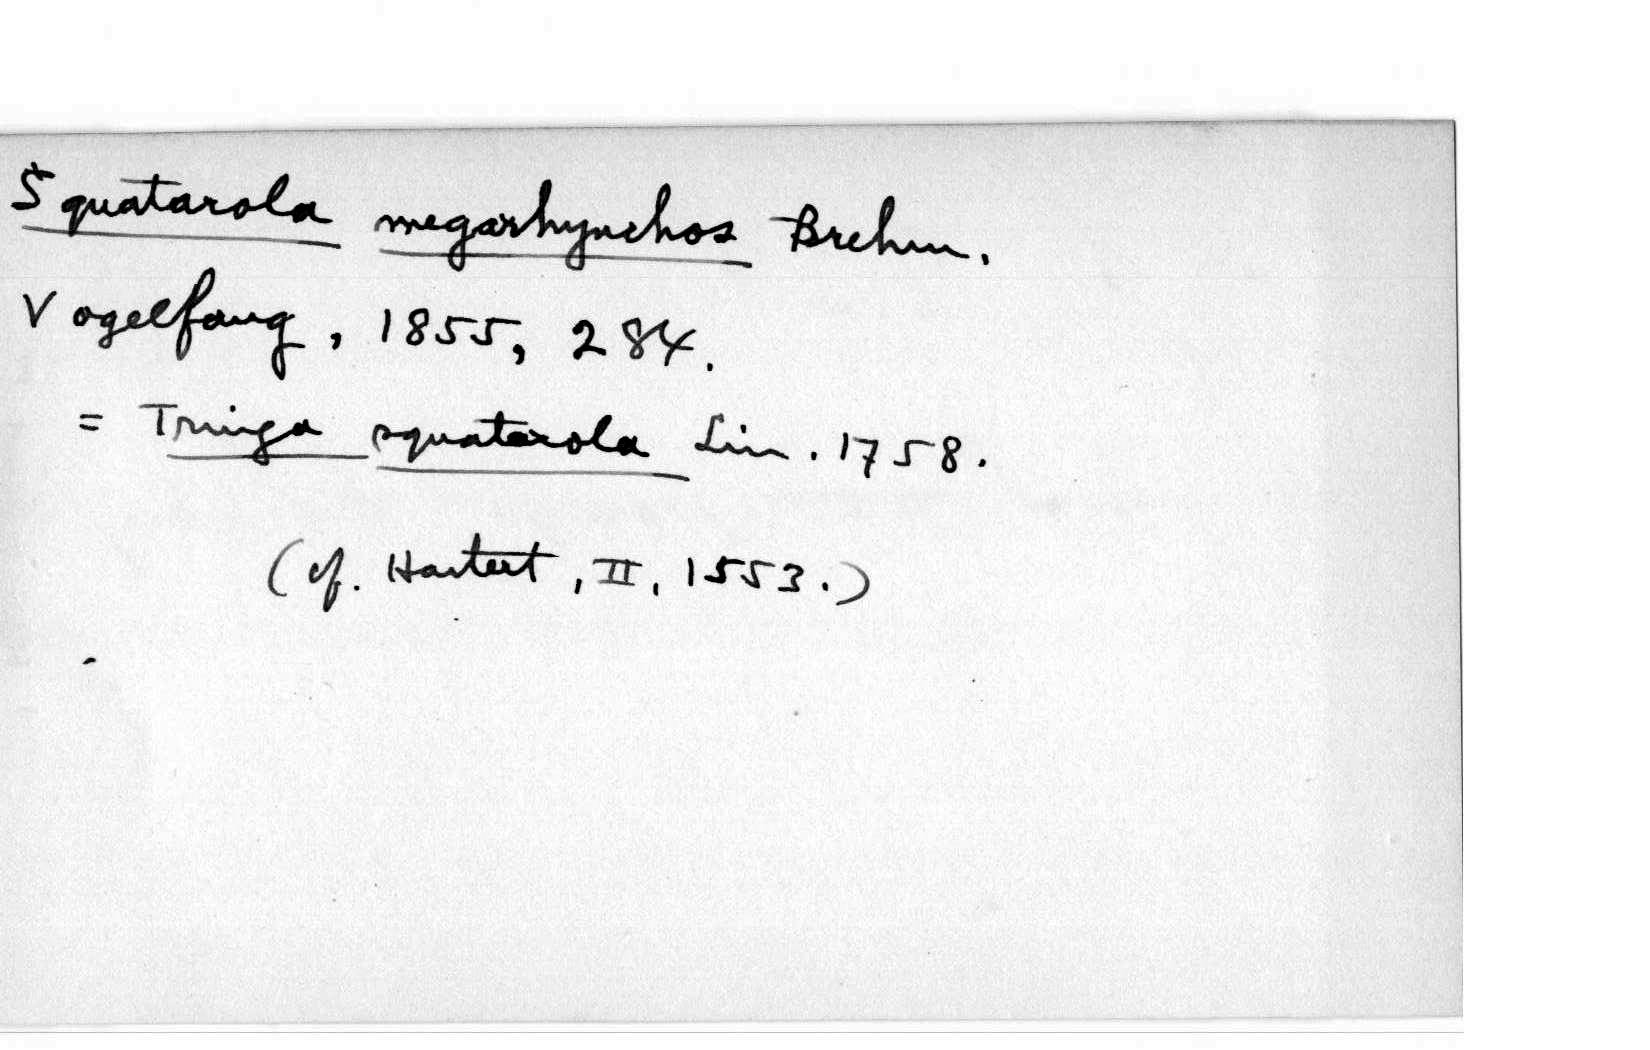 Squatarola megarhynchos Brehm.
Vogelfang, 1855, 284.
= Tringa squatarola Lin. 1758.
(cf. Hartert, II, 1553.)